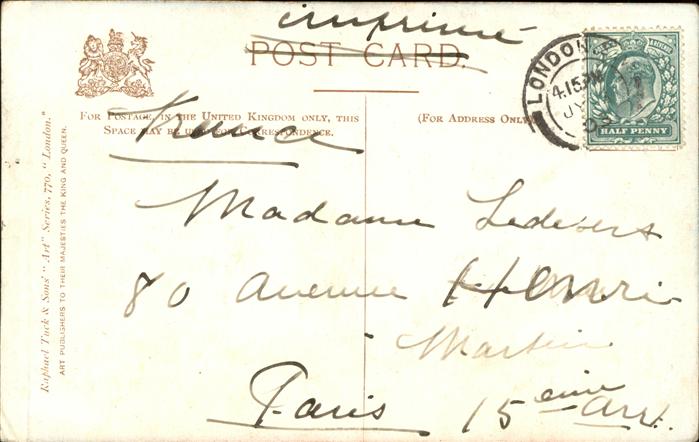 imprimé
POST CARD.
France
FOR POSTAGE, IN THE UNITED KINGDOM ONLY, THIS
SPACE MAY BE USED FOR CORRESPONDENCE.
(FOR ADDRESS ONLY
LONDON
4.15 PM
JY
HALF PENNY
Madame
80 Avenue Henri
Martin
Paris 15 eme arr.
Raphael Tuck & Sons' "Art" Series, 770, "London."
ART PUBLISHERS TO THEIR MAJESTIES THE KING AND QUEEN.